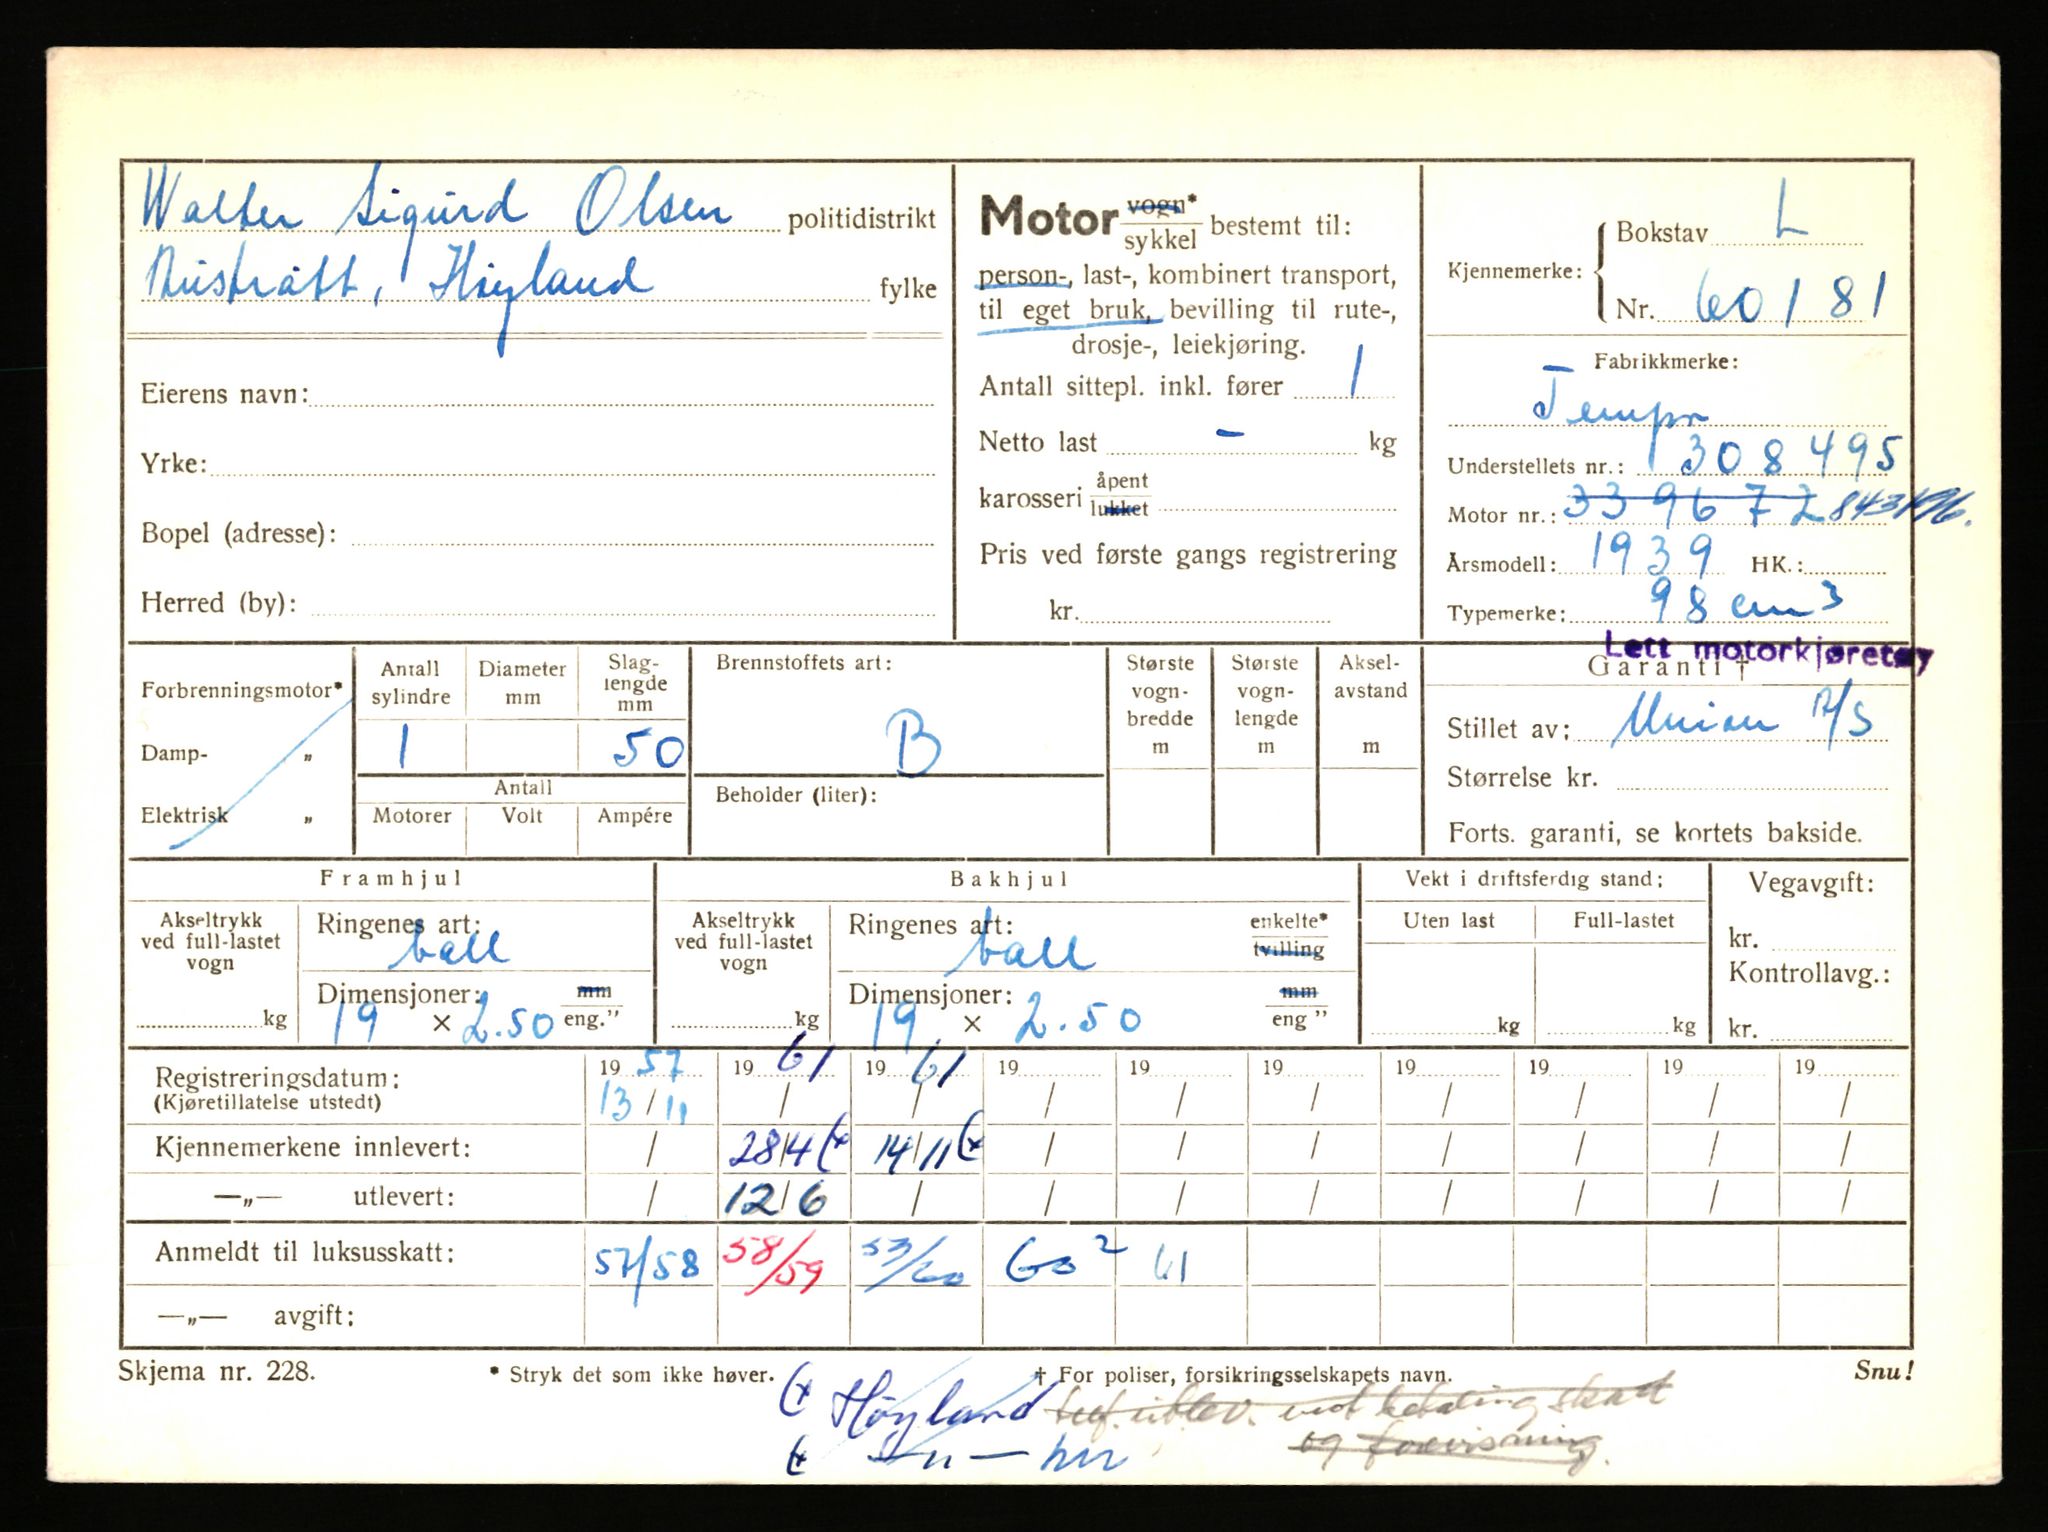 Walter Sigurd Olsen politidistrikt
Austrått, Høyland fylke
Eierens navn:
Yrke:
Bopel (adresse):
Herred (by):
Motor vogn* sykkel bestemt til:
person-, last-, kombinert transport,
til eget bruk, bevilling til rute-,
drosje-, leiekjøring.
Antall sittepl. inkl. fører 1
Netto last - kg
karosseri åpent lukket
Pris ved første gangs registrering
kr.
Kjennemerke: Bokstav L
Nr. 60181
Fabrikkmerke:
Tempo
Understellets nr.: 1308495
Motor nr.: 339672 843196.
Årsmodell: 1939 HK.:
Typemerke: 98 cm3
Lett motorkjøretøy
Garanti †
Stillet av: Union A/S
Størrelse kr.
Forts. garanti, se kortets bakside.
Forbrenningsmotor*
Damp- „
Elektrisk „
Antall sylindre Diameter mm Slag-lengde mm
1 50
Antall
Motorer Volt Ampére
Brennstoffets art:
B
Beholder (liter):
Største vogn-bredde m Største vogn-lengde m Aksel-avstand m
Framhjul
Akseltrykk ved full-lastet vogn
kg
Ringenes art:
ball
Dimensjoner: mm
19 × 2.50 eng."
Bakhjul
Akseltrykk ved full-lastet vogn
kg
Ringenes art: enkelte*
ball tvilling
Dimensjoner: mm
19 × 2.50 eng "
Vekt i driftsferdig stand:
Uten last Full-lastet
kg kg
Vegavgift:
kr.
Kontrollavg.:
kr.
Registreringsdatum: 19 57 19 61 19 61 19 19 19 19 19 19 19
(Kjøretillatelse utstedt) 13/11 / / / / / / / / /
Kjennemerkene innlevert: / 28/4 (* 14/11 (* / / / / / / /
—„— utlevert: / 12/6 / / / / / / / /
Anmeldt til luksusskatt: 57/58 58/59 53/60 60 2 61
—„— avgift:
Skjema nr. 228. * Stryk det som ikke høver. † For poliser, forsikringsselskapets navn. Snu!
(* Høyland utlev. ved betaling skatt
og fremvisning.
(* —„—